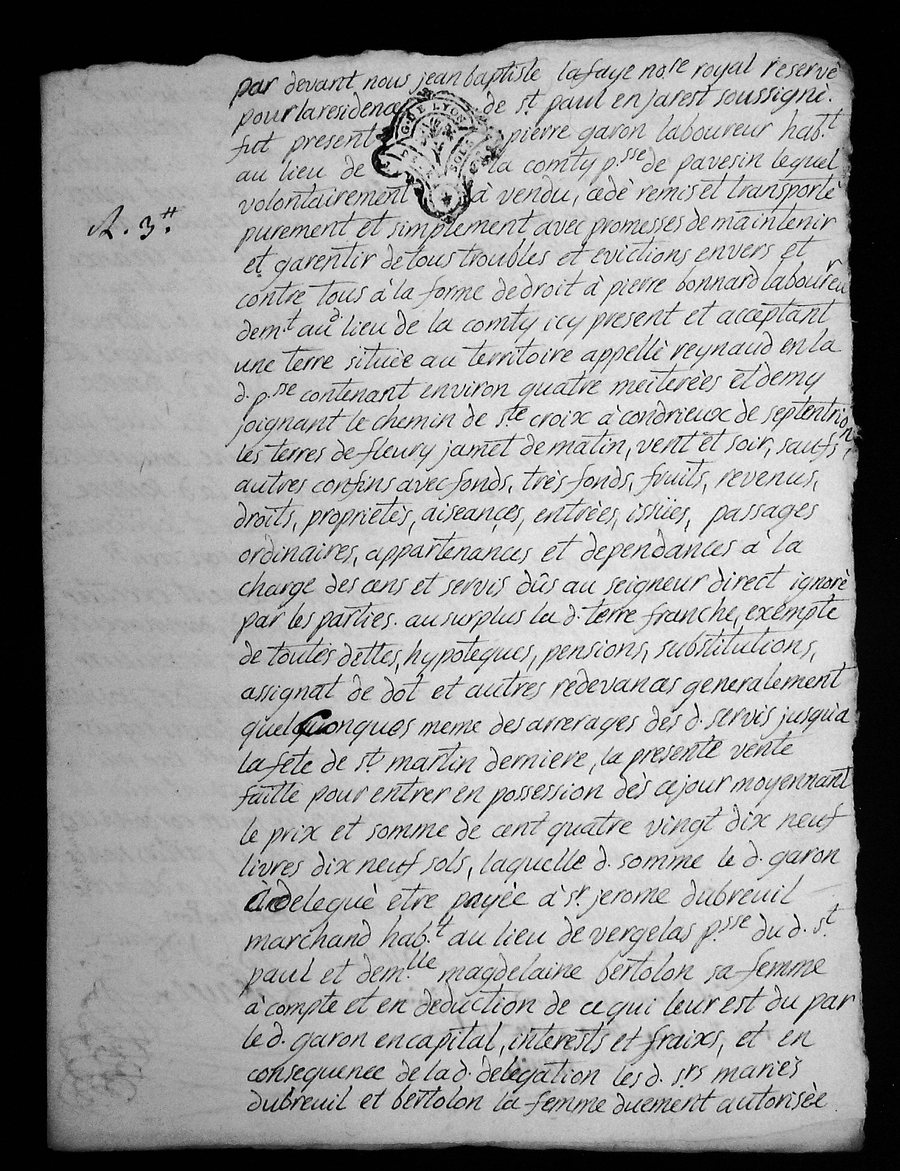 par devant nous jean baptiste lafaye nore royal reservé
pour la residence de st. paul en jarest soussigné.
fut present pierre garon laboureur hab.t
au lieu de la comty p.sse de pavesin lequel
volontairement à vendu, cedé remis et transporté
purement et simplement avec promesses de maintenir
et garentir de tous troubles et evictions envers et
contre tous à la forme de droit à pierre bonnard laboureur
demt aud lieu de la comty icy present et acceptant
une terre située au territoire appellé reynaud en la
d. p.sse contenant environ quatre meiterées et demy
joignant le chemin de ste croix à condrieux de septentrion,
les terres de fleury jamet de matin, vent et soir, saufs
autres confins avec fonds, très-fonds, fruits, revenus,
droits, proprietés, aiseances, entrées, issües, passages
ordinaires, appartenances et dependances à la
charge des cens et servis dûs au seigneur direct ignoré
par les parties. au surplus la d. terre franche, exempte
de toutes dettes, hypoteques, pensions, substitutions,
assignat de dot et autres redevances generalement
quelconques meme des arrerages des d. servis jusqu'a
la fête de st. martin derniere, la presente vente
faitte pour entrer en possession dès ce jour moyennant
le prix et somme de cent quatre vingt dix neuf
livres dix neuf sols, laquelle d. somme le d. garon
a delegué etre payée à sr. jerome dubreuil
marchand hab.t au lieu de vergelas p.sse du d. st.
paul et demlle magdelaine bertolon sa femme
à compte et en deduction de ce qui leur est du par
le d. garon en capital, interests et fraixs, et en
consequence de la d. delegation les d. srs mariés
dubreuil et bertolon la femme duement autorisée
G. DE LYON